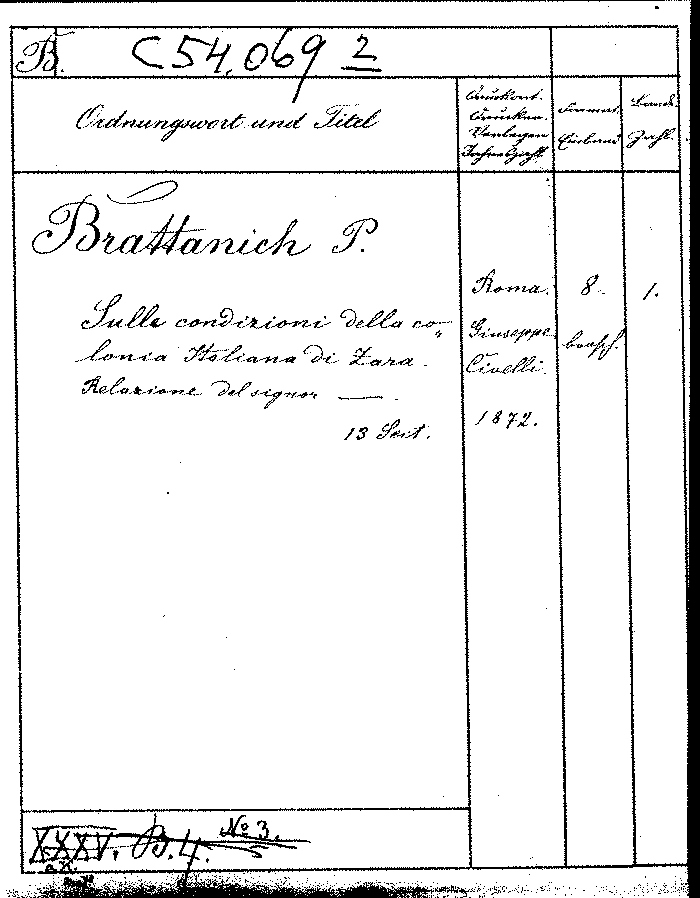 B. C 54.069 2
Ordnungswort und Titel
Druckort.
Drucker.
Verleger
Jahreszahl.
Format.
Einband
Band-
Zahl.
Brattanich P.
Sulle condizioni della co„
lonia Italiana di Zara.
Relazione del signor —.
13 Seit.
Roma.
Giuseppe
Civelli.
1872.
8.
brosch.
1.
XXXV. B. 4. No 3.